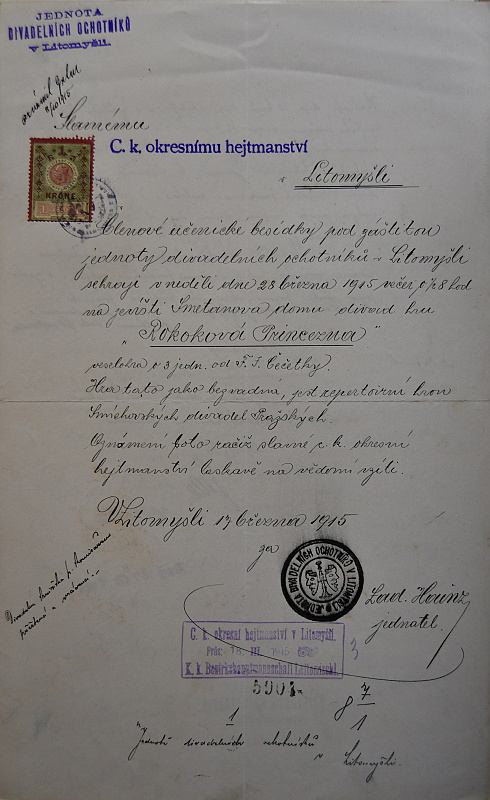 JEDNOTA
DIVADELNÍCH OCHOTNÍKŮ
v Litomyšli.
Slavnému
C. k. okresnímu hejtmanství
v
Litomyšli
1
KRONE
Členové učenické besídky pod záštitou
jednoty divadelních ochotníků v Litomyšli
sehrají v neděli dne 28 března 1915 večer o ½8 hod
na jevišti Smetanova domu divad hru
„Rokoková Princezna“
veselohra o 3 jedn. od F. J. Čečetky.
Hra tato jako bezvadná, jest repertoirní hrou
Smíchovských divadel Pražských.
Oznámení toto račiž slavné c. k. okresní
hejtmanství laskavě na vědomí vzíti.
V Litomyšli 17 března 1915
za
JEDNOTA DIVADELNÍCH OCHOTNÍKŮ V LITOMYŠLI
Lad. Hainz
jednatel.
C. k. okresní hejtmanství v Litomyšli.
Präs: 18. III. 1915
K. k. Bezirkshauptmannschaft Leitomischl.
3
5901
8 7/1
1
Jednotě divadelních ochotníků
v Litomyšli.